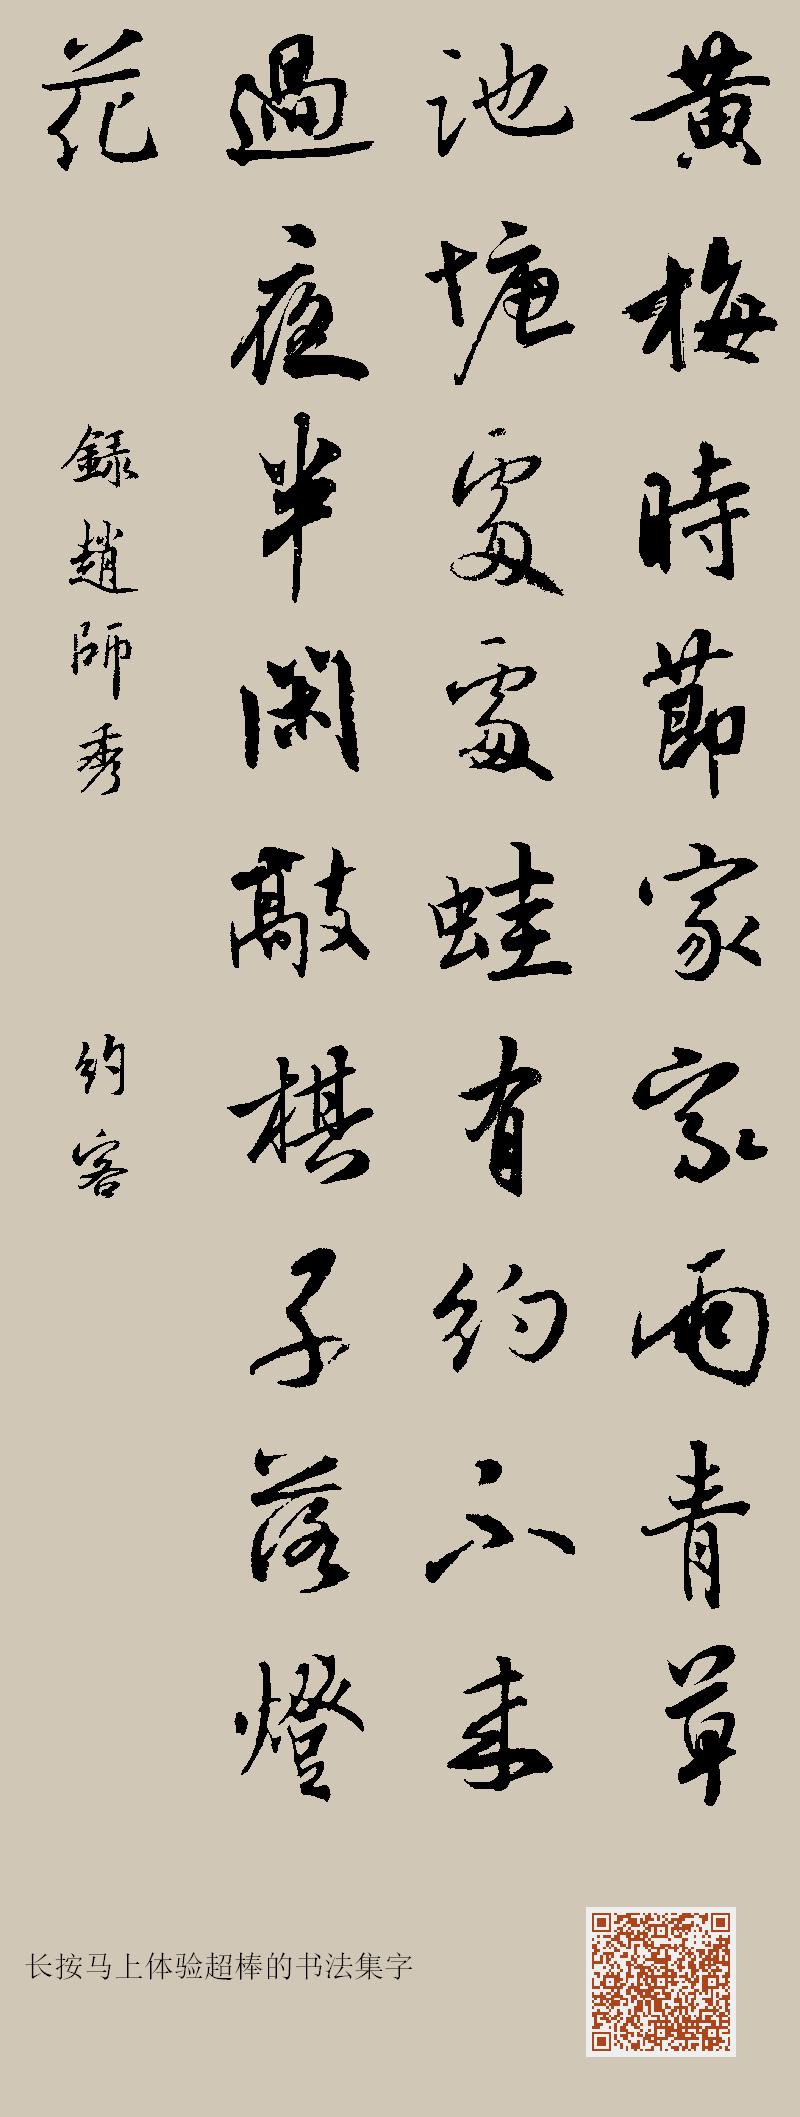 黃梅時節家家雨青草
池塘處處蛙有約不来
過夜半閑敲棋子落燈
花
録趙師秀 約客
长按马上体验超棒的书法集字